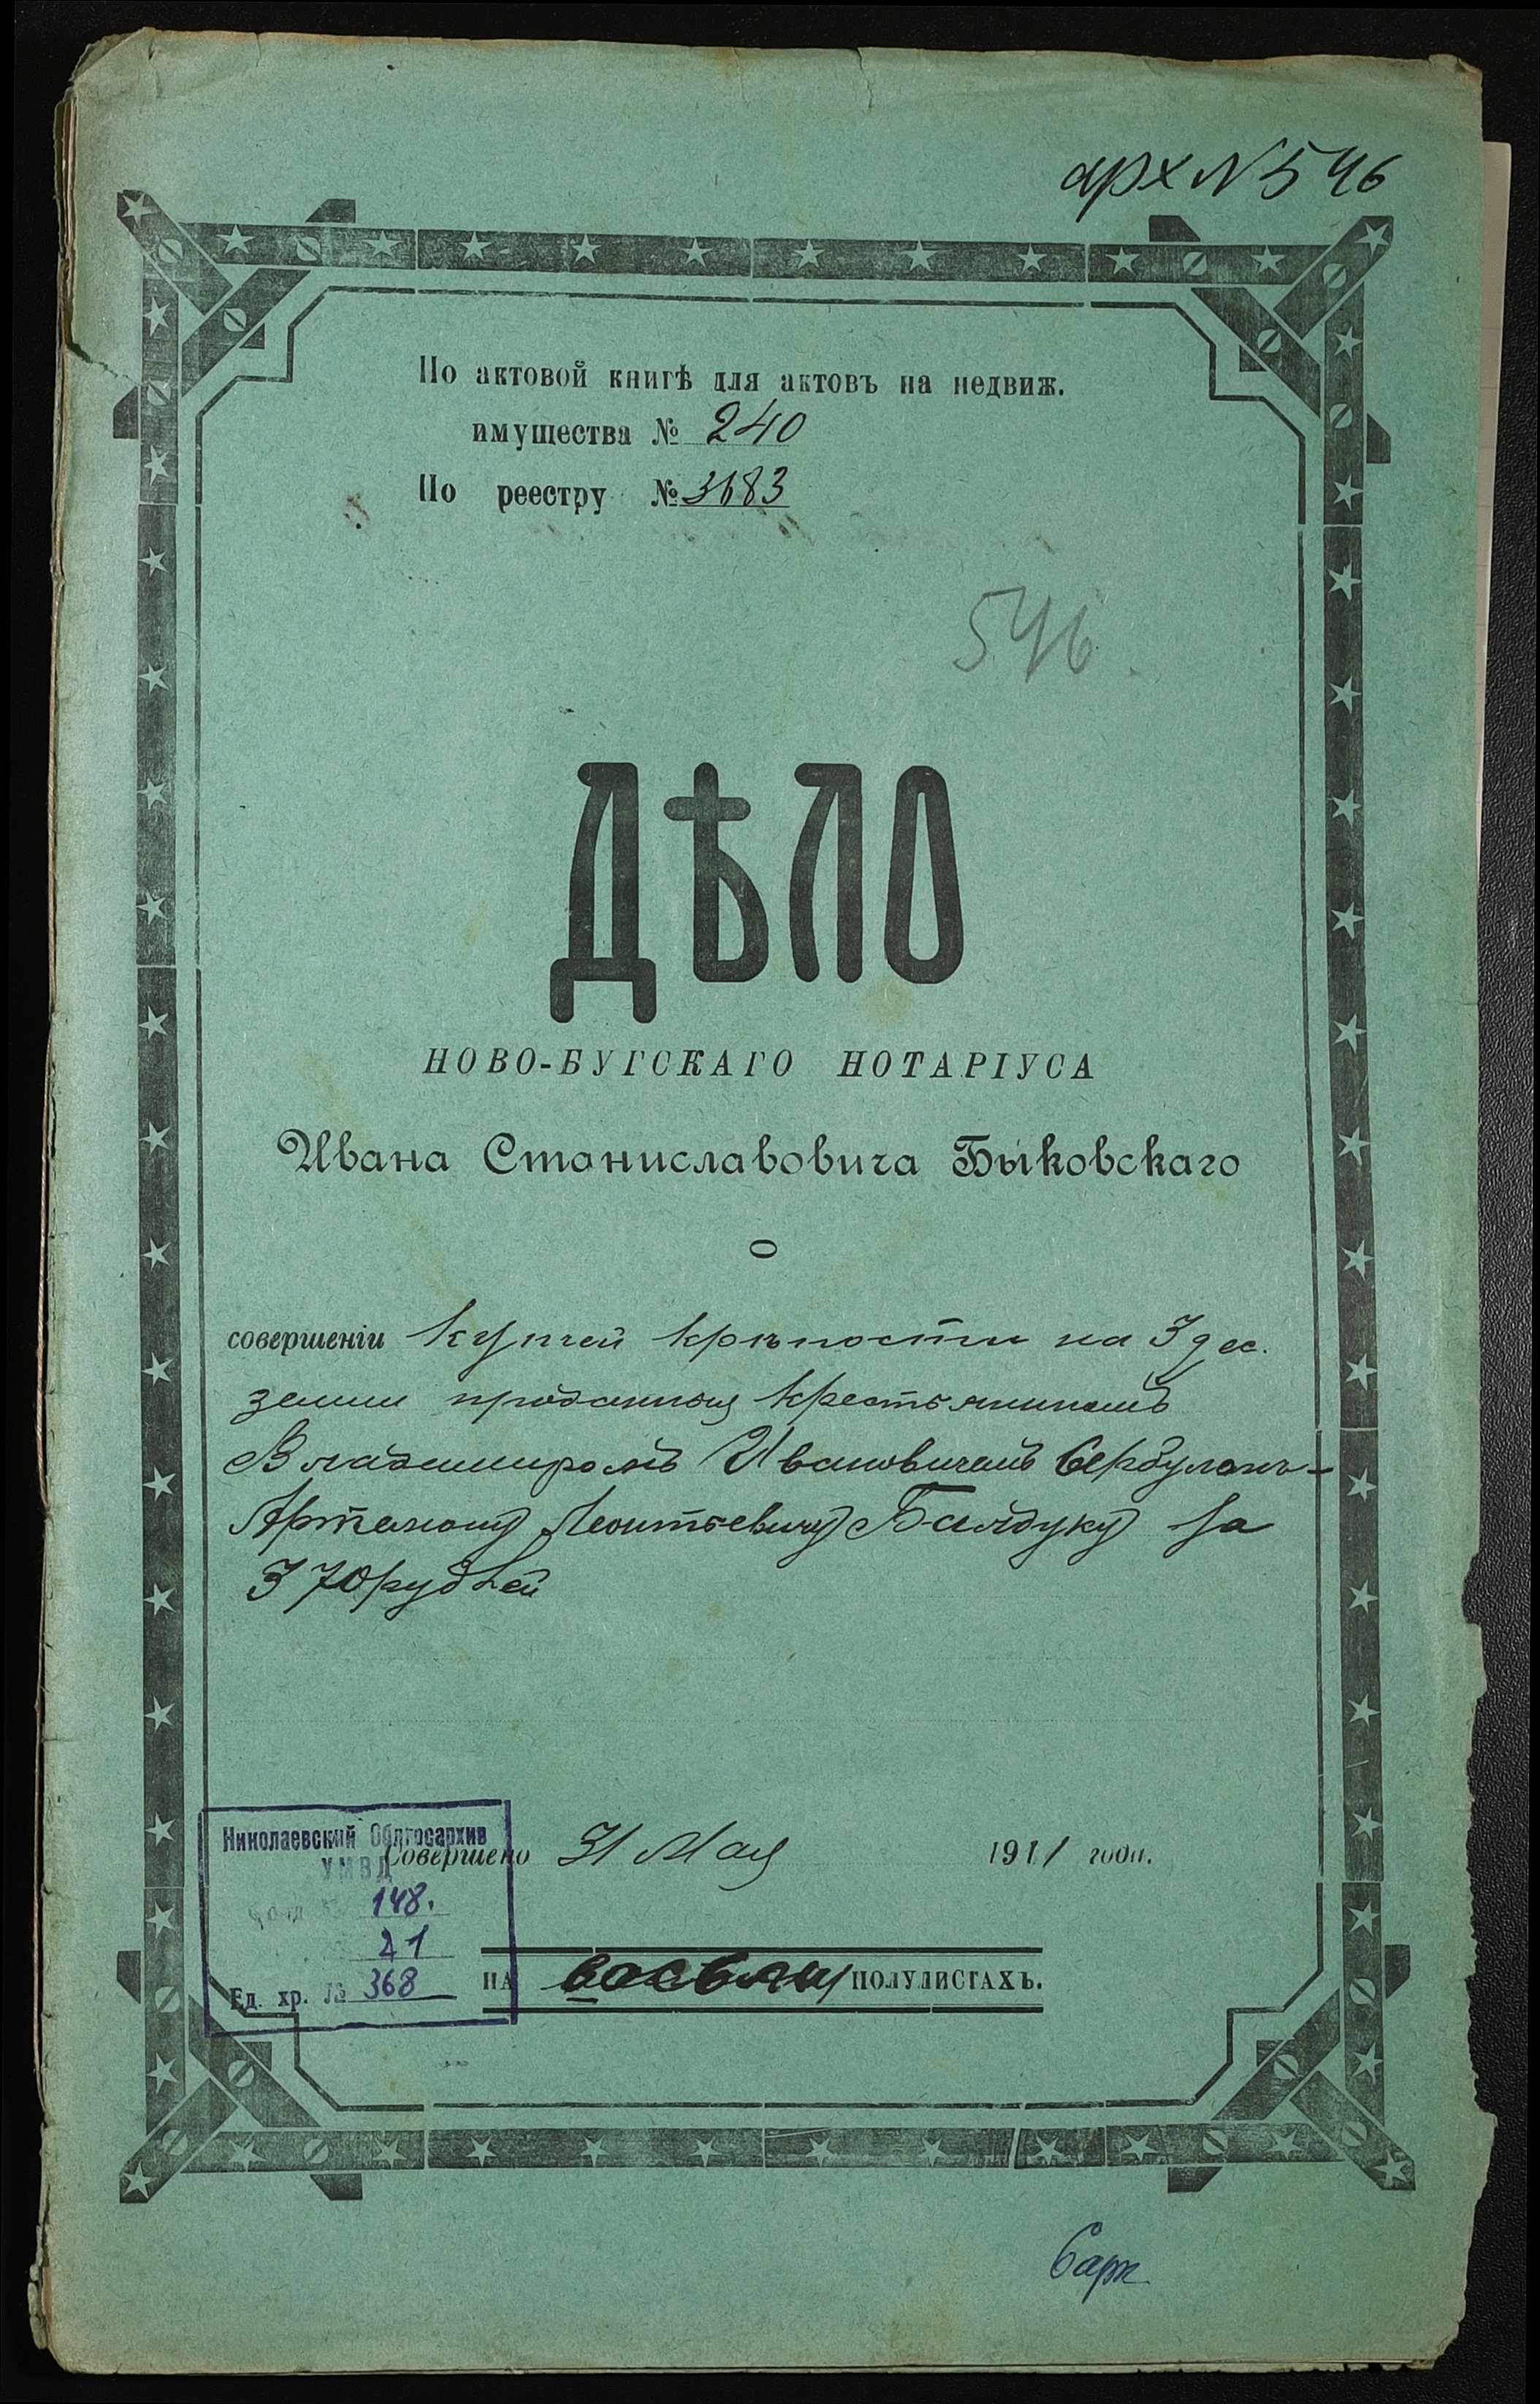 арх N 546
По актовой книгѣ для актовъ на недвиж.
имущества № 240
По реестру № 3683
546.
ДѢЛО
НОВО-БУГСКАГО НОТАРІУСА
Ивана Станиславовича Быковскаго
о
совершеніи купчей крѣпости на 3 дес.
земли проданныя крестьяниномъ
Владимиромъ Ивановичемъ Сербуломъ-
Артемому Леонтьевичу Балдуку за
370 рублей
Николаевский Облгосархив
УМВД
Совершено 31 Мая 1911 года.
Фонд № 148.
21
Ед. хр. № 368
НА восьми ПОЛУЛИСТАХЪ.